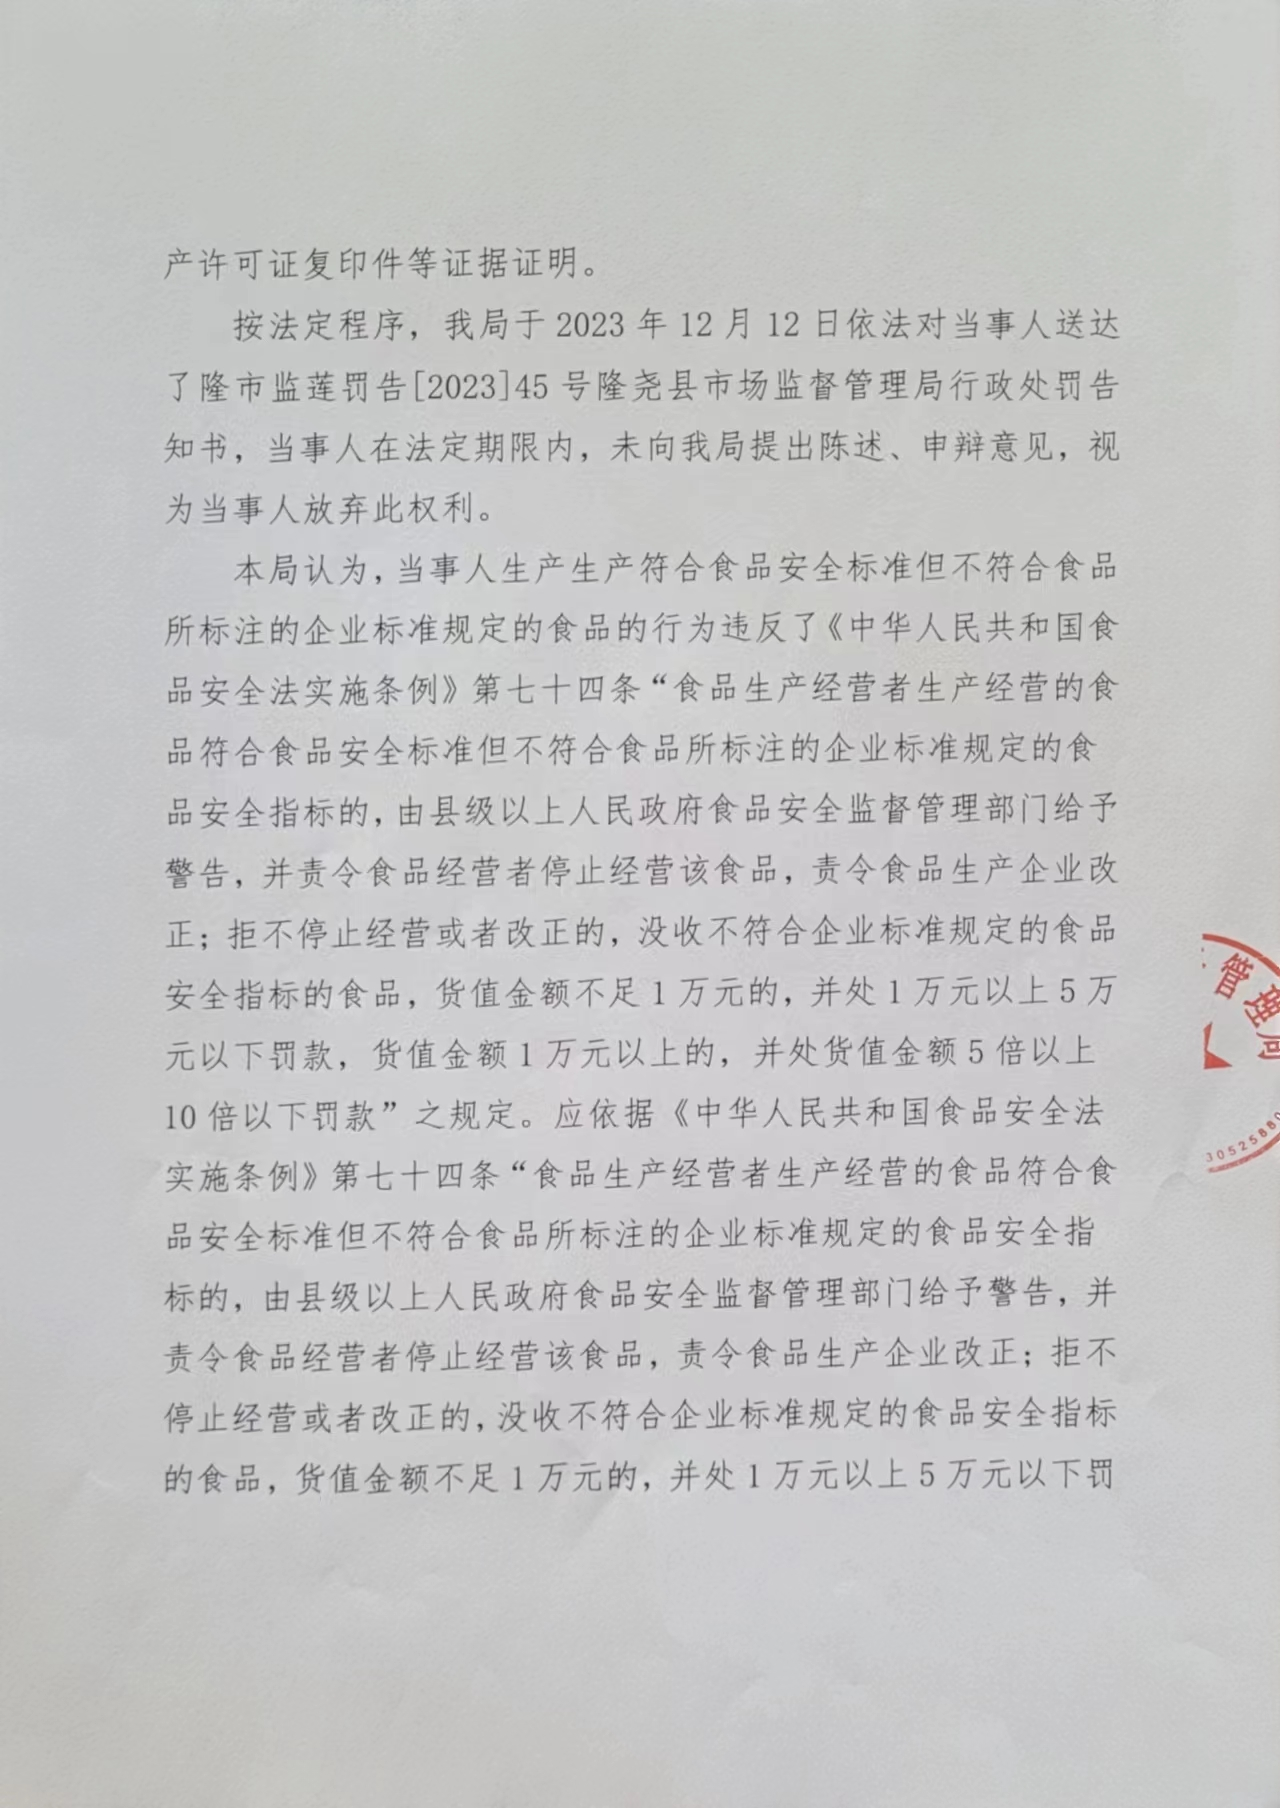 产许可证复印件等证据证明。
按法定程序，我局于 2023 年 12 月 12 日依法对当事人送达
了隆市监莲罚告[2023]45 号隆尧县市场监督管理局行政处罚告
知书，当事人在法定期限内，未向我局提出陈述、申辩意见，视
为当事人放弃此权利。
本局认为，当事人生产生产符合食品安全标准但不符合食品
所标注的企业标准规定的食品的行为违反了《中华人民共和国食
品安全法实施条例》第七十四条“食品生产经营者生产经营的食
品符合食品安全标准但不符合食品所标注的企业标准规定的食
品安全指标的，由县级以上人民政府食品安全监督管理部门给予
警告，并责令食品经营者停止经营该食品，责令食品生产企业改
正；拒不停止经营或者改正的，没收不符合企业标准规定的食品
安全指标的食品，货值金额不足 1 万元的，并处 1 万元以上 5 万
元以下罚款，货值金额 1 万元以上的，并处货值金额 5 倍以上
10 倍以下罚款”之规定。应依据《中华人民共和国食品安全法
实施条例》第七十四条“食品生产经营者生产经营的食品符合食
品安全标准但不符合食品所标注的企业标准规定的食品安全指
标的，由县级以上人民政府食品安全监督管理部门给予警告，并
责令食品经营者停止经营该食品，责令食品生产企业改正；拒不
停止经营或者改正的，没收不符合企业标准规定的食品安全指标
的食品，货值金额不足 1 万元的，并处 1 万元以上 5 万元以下罚
管理局
30525880